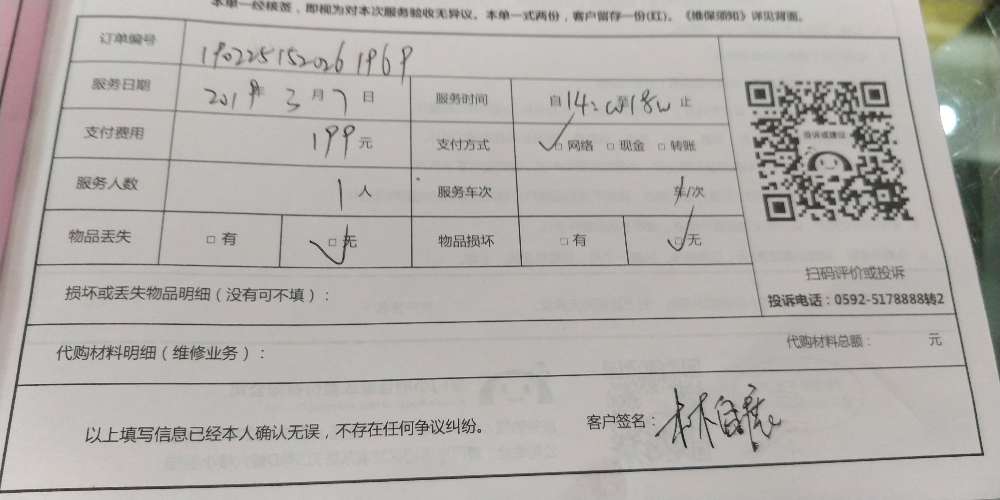 本单一经核签，即视为对本次服务验收无异议。本单一式两份，客户留存一份(红)。《维保须知》详见背面。
订单编号 1902251520261969
服务日期 2019年3月7日 服务时间 自14:00至18:00止
支付费用 199元 支付方式 □网络 □现金 □转账
服务人数 1人 服务车次 车/次
物品丢失 □有 □无 物品损坏 □有 □无
投诉或建议
扫码评价或投诉
投诉电话：0592-5178888转2
损坏或丢失物品明细（没有可不填）：
代购材料明细（维修业务）： 代购材料总额： 元
以上填写信息已经本人确认无误，不存在任何争议纠纷。 客户签名：林